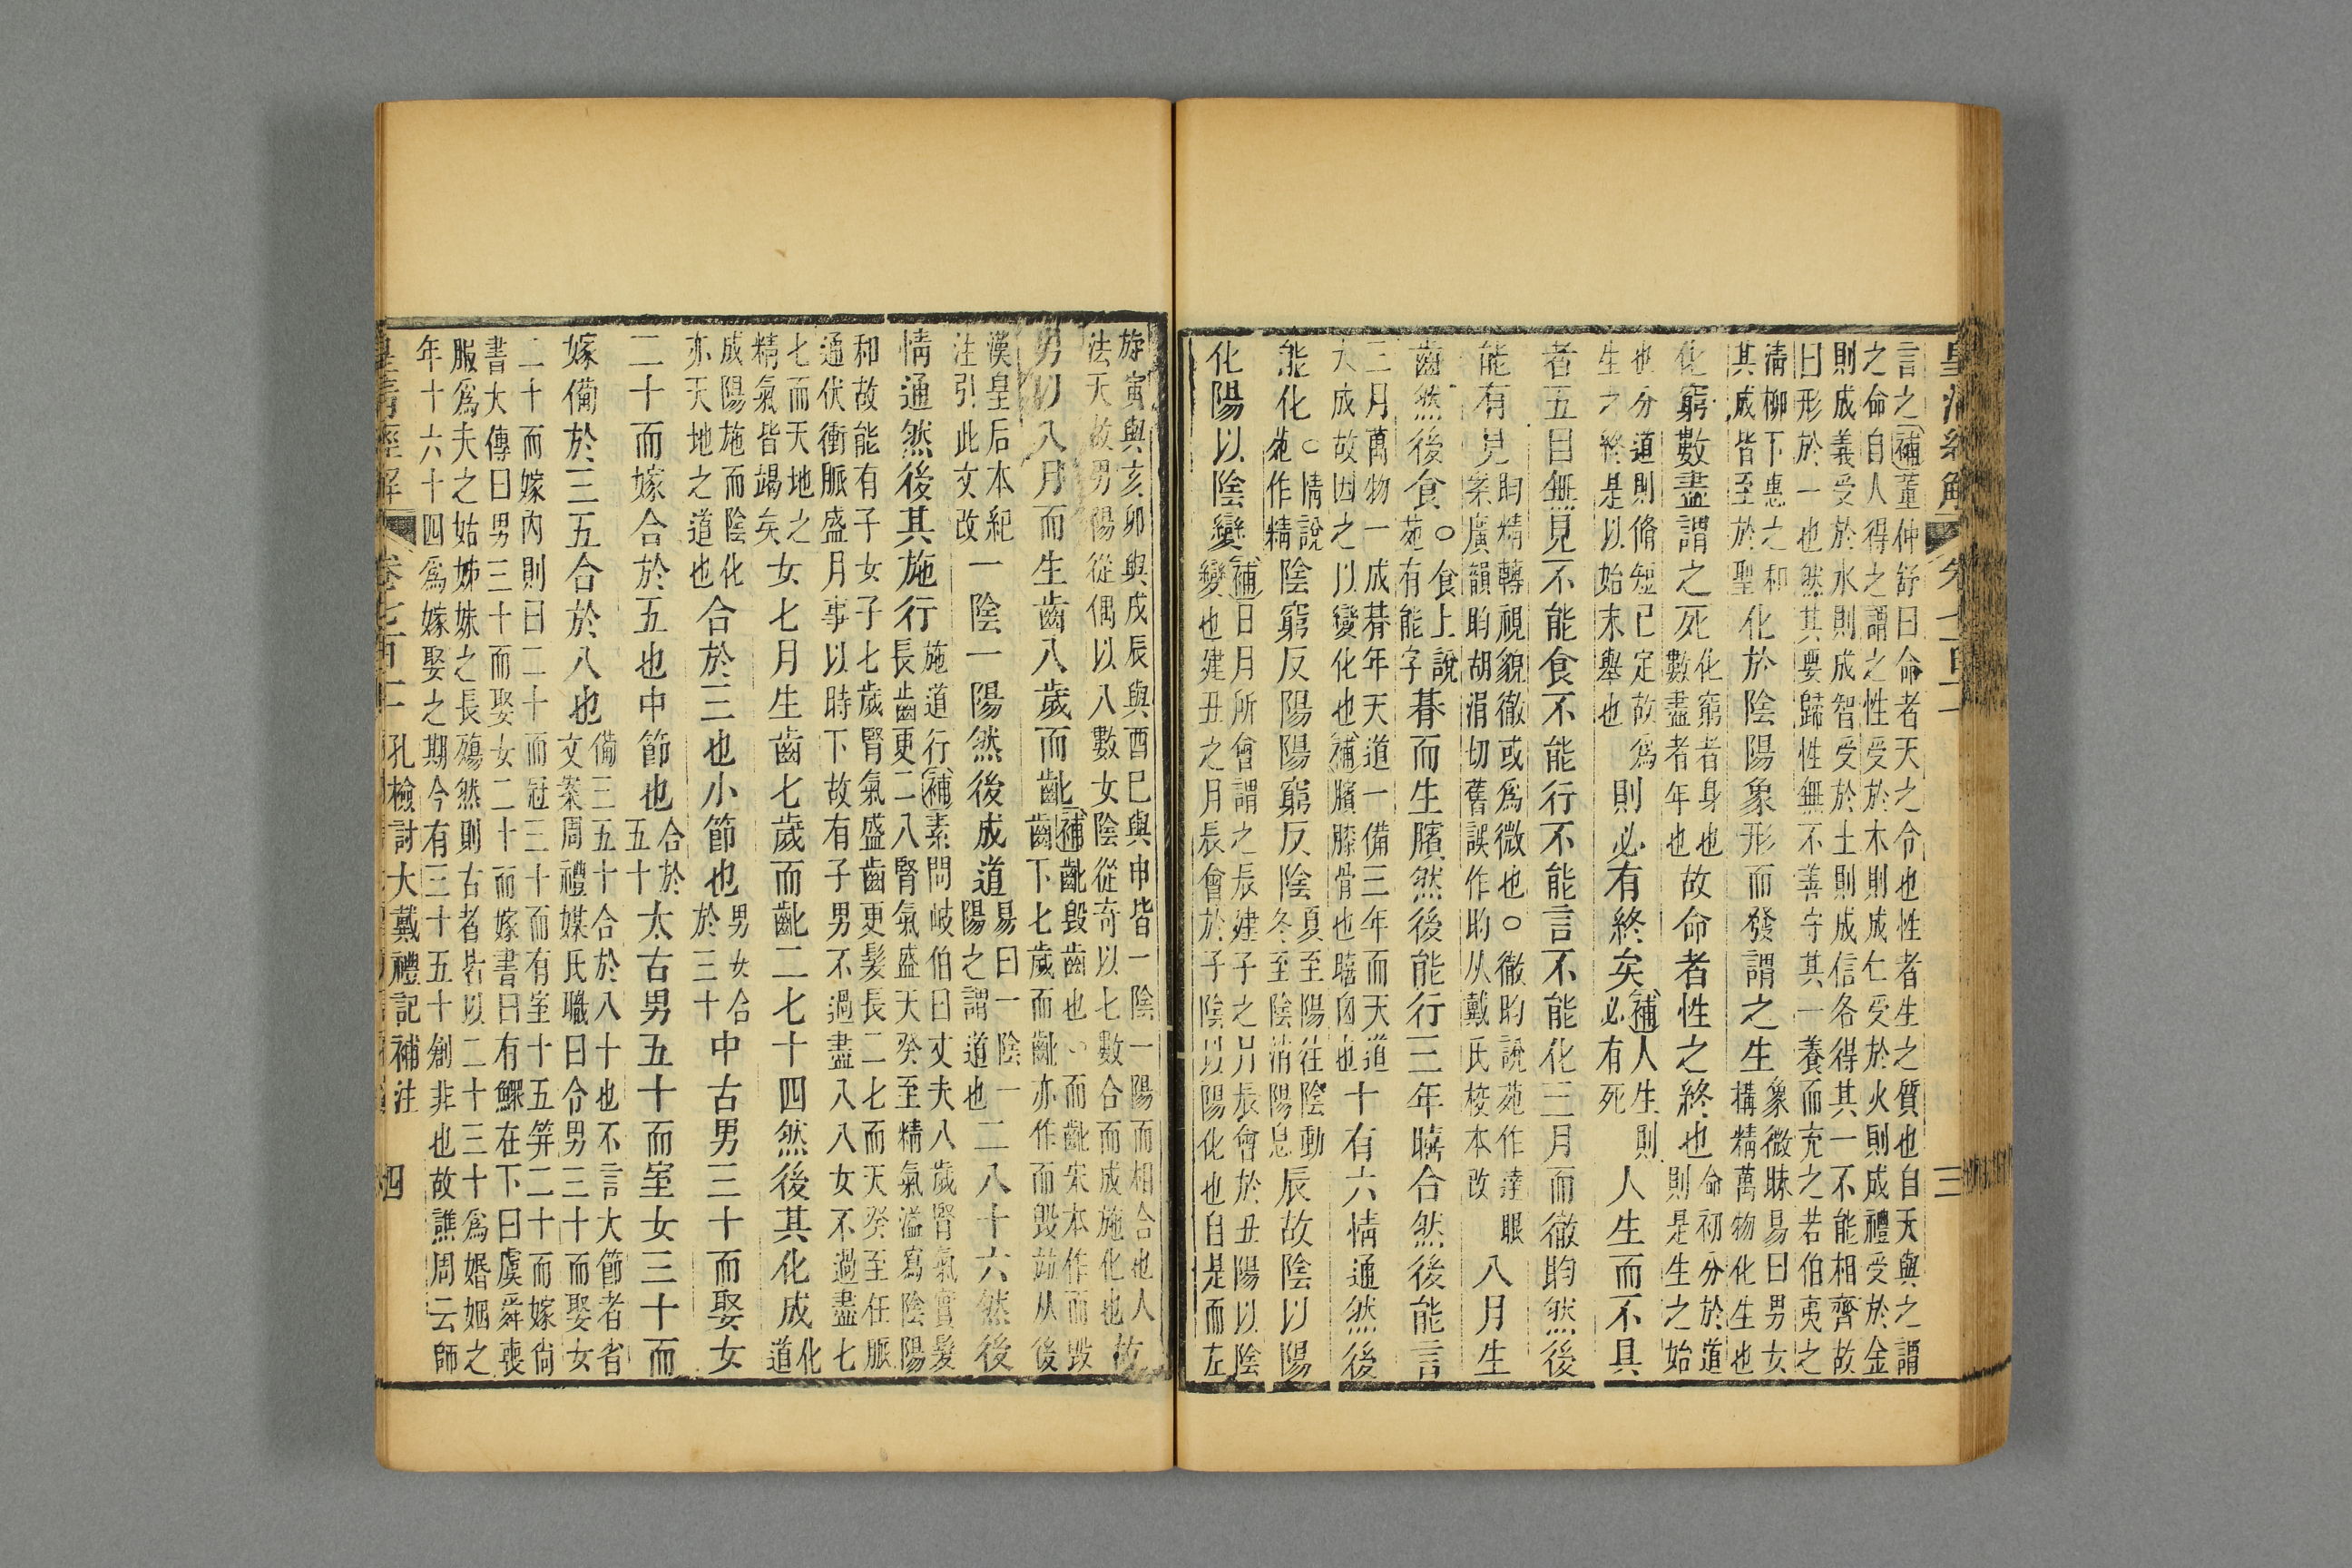 皇清經解 卷七百十一 三
言之補董仲舒曰命者天之令也性者生之質也自天與之謂
之命自人得之謂之性受於木則成仁受於火則成禮受於金
則成義受於水則成智受於土則成信各得其一不能相齊故
曰形於一也然其要歸性無不善守其一養而充之若伯夷之
清柳下惠之和其成皆至於聖化於陰陽象形而發謂之生象微昧易曰男女構精萬物化生也
化窮數盡謂之死化窮者身也數盡者年也故命者性之終也命初分於道則是生之始
也分道則脩短已定故爲生之終是以始末舉也則必有終矣補人生則必有死人生而不具
者五目無見不能食不能行不能言不能化三月而徹盷然後
能有見盷精轉視貌徹或爲微也○徹盷說苑作達眼案廣韻盷胡涓切舊誤作盷从戴氏校本改八月生
齒然後食○食上說苑有能字朞而生臏然後能行三年瞦合然後能言
三月萬物一成朞年天道一備三年而天道大成故因之以變化也補臏膝骨也瞦囟也十有六情通然後
能化○情說苑作精陰窮反陽陽窮反陰夏至陽往陰動冬至陰消陽息辰故陰以陽
化陽以陰變補日月所會謂之辰建子之月辰會於丑陽以陰變也建丑之月辰會於子陰以陽化也自是而左
旋寅與亥卯與戌辰與酉巳與申皆一陰一陽而相合也人法天故男陽從偶以八數女陰從奇以七數合而成施化也故
男以八月而生齒八歲而齔補齔毀齒也○而齔宋本作而毀齒下七歲而齔亦作而毀茲从後
漢皇后本紀注引此文改一陰一陽然後成道易曰一陰一陽之謂道也二八十六然後
情通然後其施行施道行補素問岐伯曰丈夫八歲腎氣實髮長齒更二八腎氣盛天癸至精氣溢寫陰陽
和故能有子女子七歲腎氣盛齒更髮長二七而天癸至任脈
通伏衝脈盛月事以時下故有子男不過盡八八女不過盡七
七而天地之精氣皆竭矣女七月生齒七歲而齔二七十四然後其化成化道
成陽施而陰化亦天地之道也合於三也小節也男女合於三十中古男三十而娶女
二十而嫁合於五也中節也合於五十太古男五十而室女三十而
嫁備於三五合於八也備三五十合於八十也不言大節者省文案周禮媒氏職曰令男三十而娶女
二十而嫁內則曰二十而冠三十而有室十五笄二十而嫁尙
書大傳曰男三十而娶女二十而嫁書曰有鰥在下曰虞舜喪
服爲夫之姑姊妹之長殤然則古者皆以二十三十爲婚姻之
年十六十四爲嫁娶之期今有三十五十創非也故譙周云師
皇清經解 卷七百十一 孔檢討大戴禮記補注 四